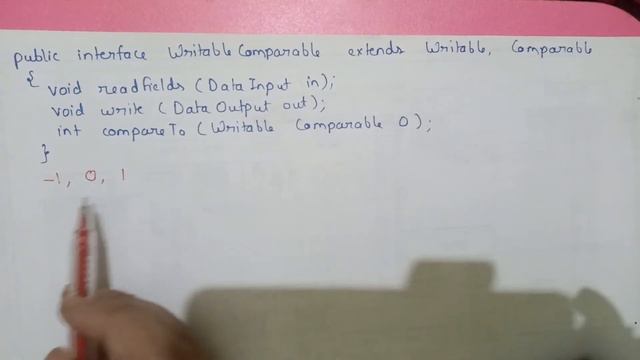 public interface Writable Comparable extends Writable, Comparable
{ void readfields (Data Input in);
void write (Data Output out);
int compareTo (Writable Comparable O);
}
-1, 0, 1